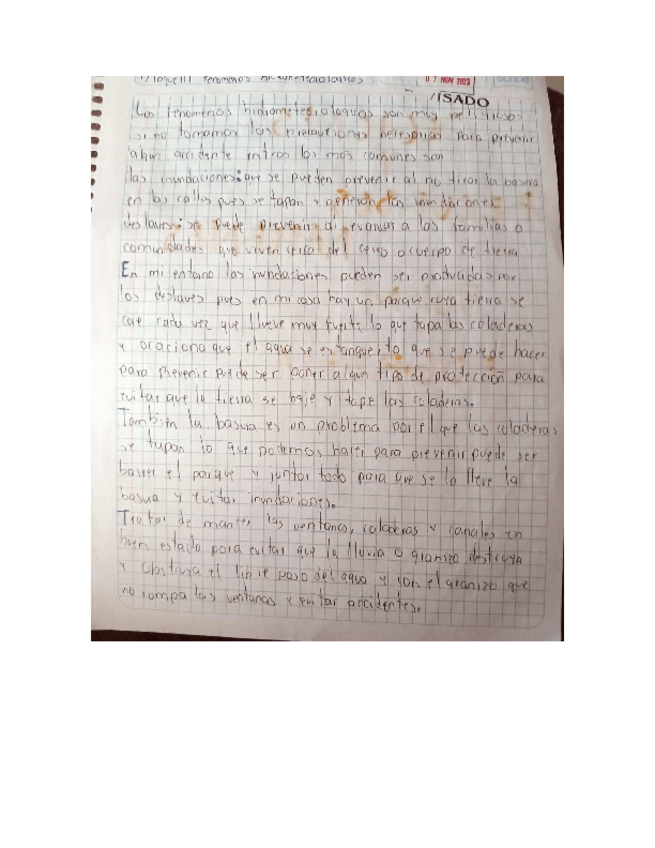 Bloque III Fenomenos hidrometeorologicos
07 NOV 2023
VISADO
Los fenomenos hidrometeorologicos son muy peligrosos
si no tomamos las precauciones necesarias para prevenir
algun accidente entros los mas comunes son
las inundaciones: que se pueden prevenir al no tirar la basura
en las calles pues se tapan y generan las inundaciones
deslaves: se puede prevenir al evacuar a las familias o
comunidades que viven cerca del cerro o cuerpo de tierra
En mi entorno las inundaciones pueden ser producidas por
los deslaves pues en mi casa hay un parque cuya tierra se
cae cada vez que llueve muy fuerte lo que tapa las coladeras
y ocaciona que el agua se estanque, lo que se puede hacer
para prevenir puede ser poner algun tipo de protección para
evitar que la tierra se baje y tape las coladeras.
También la basura es un problema por el que las coladeras
se tapan lo que podemos hacer para prevenir puede ser
barrer el parque y juntar todo para que se lo lleve la
basura y evitar inundaciones.
Tratar de mantener las ventanas, coladeras y canales en
buen estado para evitar que la lluvia o granizo destruya
y obstruya el libre paso del agua y con el granizo que
no rompa las ventanas y evitar accidentes.